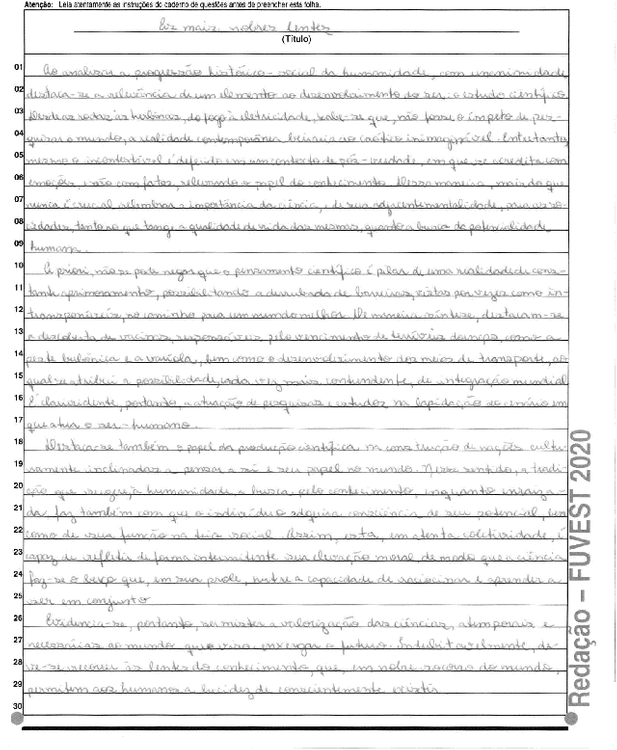 Atenção: Leia atentamente as instruções do caderno de questões antes de preencher esta folha.
Por mais nobres lentes
(Título)
01 Ao analisar a progressão histórico-social da humanidade, com unanimidade
02 destaca-se a relevância de um elemento ao desenvolvimento do ser: o estudo científico.
03 do fogo à eletricidade, sabe-se que, não fosse o ímpeto de pes-
04 quisar o mundo, a realidade contemporânea beiraria ao caótico inimaginável. Entretanto,
05 mesmo o incontestável é defendido em um contexto de pós-verdade, em que se acredita com
06 emoções, e não com fatos, relevando o papel do conhecimento. Dessa maneira, mais do que
07 nunca é crucial relembrar a importância da ciência, e de sua para as so-
08 ciedades, tanto no que tange a qualidade de vida das mesmas, quanto a busca da potencialidade
09 humana.
10 A priori, não se pode negar que o pensamento científico é pilar de uma realidade de cons-
11 tante aprimoramento, possibilitando a derrubada de barreiras, vistas por vezes como in-
12 transponíveis, no caminho para um mundo melhor. De maneira síntese, destacam-se
13 a descoberta de vacinas, responsáveis pelo vencimento de terríveis doenças, como a
14 peste bubônica e a varíola, bem como o desenvolvimento dos meios de transporte, ao
15 qual se atribui a possibilidade, cada vez mais contundente, de integração mundial.
16 É clarividente, portanto, a atuação de pesquisas e estudos na lapidação do cenário em
17 que atua o ser-humano.
18 Destaca-se também o papel da produção científica na construção de nações cultu-
19 ramente inclinadas a pensar a si e seu papel no mundo. Nesse sentido, a tradi-
20 ção que sugeja humanidade a busca pelo conhecimento, enquanto enraiza-
21 da, faz também com que o indivíduo adquira consciência de seu potencial, bem
22 como de sua função na teia social. Assim, esta, em atenta coletividade, é
23 capaz de refletir de forma intermitente sua elevação moral, de modo que a ciência
24 faz-se o berço que, em sua prole, nutre a capacidade de raciocinar e aprender a
25 ser em conjunto.
26 Evidencia-se, portanto, ser mister a valorização das ciências, atemporais e
27 necessárias ao mundo que visa enxergar o futuro. Indubitavelmente, de-
28 ve-se recorrer às lentes do conhecimento, que, em nobre socorro do mundo,
29 permitem aos humanos a lucidez de conscientemente existir.
30
Redação – FUVEST 2020